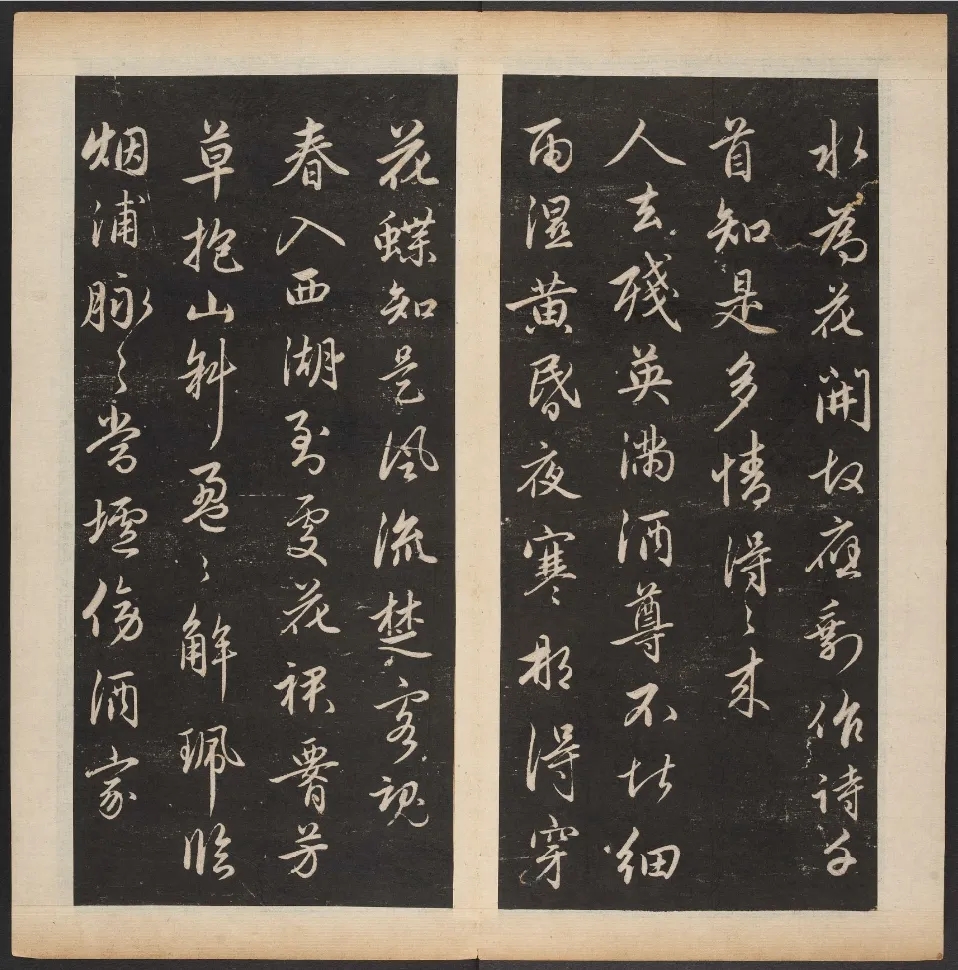 水為花開故應剩作詩千
首知是多情得〻來
人去殘英滿酒尊不堪細
雨濕黃昏夜寒那得穿
花蝶知是風流楚客魂
春入西湖到處花裙腰芳
草抱山斜盈〻解珮臨
烟浦脉〻當壚傍酒家